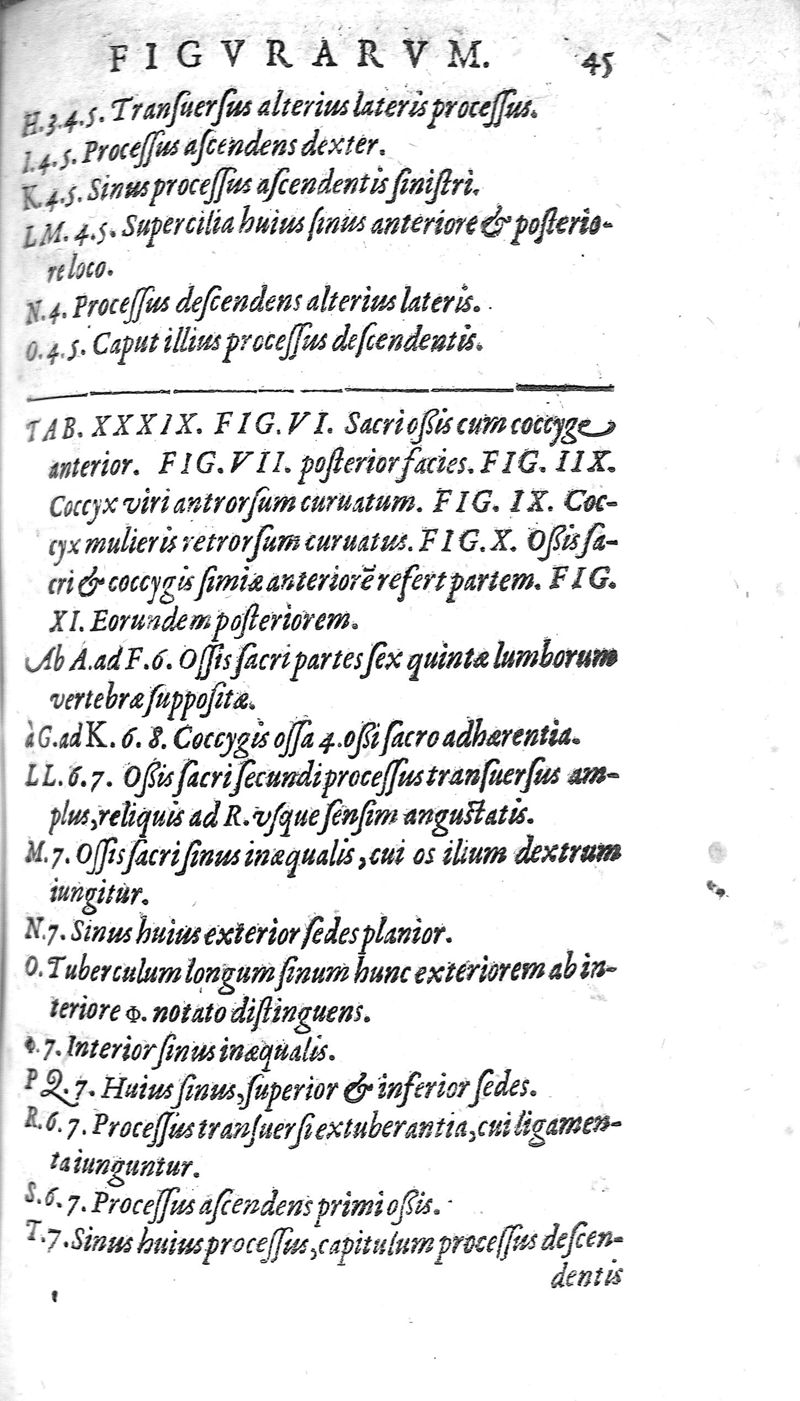 FIGVRARVM. 45
H.3.4.5. Tranſuerſus alterius lateris proceſſus.
I.4.5. Proceſſus aſcendens dexter.
K.4.5. Sinus proceſſus aſcendentis ſiniſtri.
LM. 4.5. Supercilia huius ſinus anteriore & poſterio-
re loco.
N.4. Proceſſus deſcendens alterius lateris.
O.4.5. Caput illius proceſſus deſcendentis.
TAB. XXXIX. FIG. VI. Sacri oßis cum coccyge
anterior. FIG. VII. poſterior facies. FIG. IIX.
Coccyx viri antrorſum curuatum. FIG. IX. Coc-
cyx mulieris retrorſum curuatus. FIG. X. Oßis ſa-
cri & coccygis ſimiæ anteriorē refert partem. FIG.
XI. Eorundem poſteriorem.
Ab A. ad F.6. Oſſis ſacri partes ſex quintæ lumborum
vertebræ ſuppoſitæ.
à G. ad K. 6. 8. Coccygis oſſa 4. oßi ſacro adhærentia.
LL.6.7. Oßis ſacri ſecundi proceſſus tranſuerſus am-
plus, reliquis ad R. vſque ſenſim anguſtatis.
M.7. Oſſis ſacri ſinus inæqualis, cui os ilium dextrum
iungitur.
N.7. Sinus huius exterior ſedes planior.
O. Tuberculum longum ſinum hunc exteriorem ab in-
teriore Φ. notato diſtinguens.
Φ.7. Interior ſinus inæqualis.
P Q.7. Huius ſinus, ſuperior & inferior ſedes.
R.6.7. Proceſſus tranſuerſi extuberantia, cui ligamen-
ta iunguntur.
S.6.7. Proceſſus aſcendens primi oßis.
T.7. Sinus huius proceſſus, capitulum proceſſus deſcen-
dentis